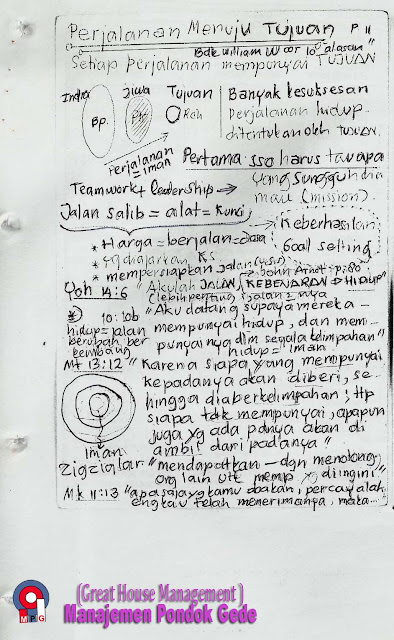 Perjalanan Menuju Tujuan P 11
Bdk William W cor 10 alasan"
Setiap Perjalanan mempunyai TUJUAN
Indra Jiwa Tujuan
Bp. Roh
Banyak kesuksesan
Perjalanan hidup
ditentukan oleh tujuan.
Perjalanan
= iman
Pertama sso harus tau apa
yang sungguh dia
mau (mission).
Teamwork + leadership →
Jalan salib = alat = kunci
Keberhasilan
Goal setting
* Harga = berjalan =
* yg diajarkan KS
* mempersiapkan jalan
John p: 80
Yoh 14:6 "Akulah JALAN, KEBENARAN & HIDUP"
(lebih penting jalan2 nya
10:10b "Aku datang supaya mereka
mempunyai hidup, dan mem-
punyainya dlm segala kelimpahan"
hidup = iman
hidup = jalan
berubah ber
kembang
Mt 13:12 "Karena siapa yang mempunyai
kepadanya akan diberi, se-
hingga dia berkelimpahan; ttp
siapa tdk mempunyai, apapun
juga yg ada pdnya akan di
ambil dari padanya"
Iman
Zig ziglar "mendapatkan – dgn menolong
org lain utk memp yg diingini"
Mk 11:13 "apa saja yg kamu doakan, percayalah
engkau telah menerimanya, maka...
MPG
(Great House Management)
Manajemen Pondok Gede